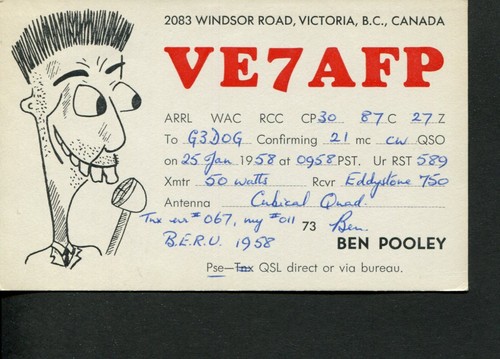 2083 WINDSOR ROAD, VICTORIA, B.C., CANADA
VE7AFP
ARRL WAC RCC CP30 87C 27Z
To G3DOG Confirming 21 mc CW QSO
on 25 Jan 1958 at 0958 PST. Ur RST 589
Xmtr 50 watts Rcvr Eddystone 750
Antenna Cubical Quad.
Tnx ur #067, my #011 73 Ben.
B.E.R.U. 1958 BEN POOLEY
Pse—Tnx QSL direct or via bureau.